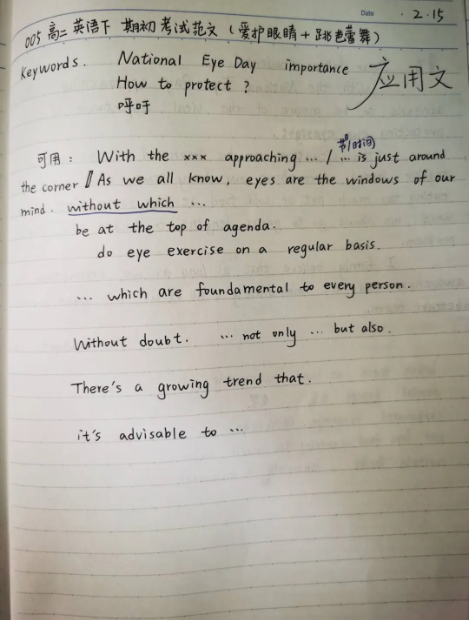 Date 2.15
005 高二英语下 期初考试范文 (爱护眼睛 + 跳芭蕾舞)
Keywords. National Eye Day importance 应用文
How to protect ?
呼吁
节日/时间
可用: With the ××× approaching ... / ... is just around
the corner // As we all know, eyes are the windows of our
mind. without which ...
be at the top of agenda.
do eye exercise on a regular basis.
... which are foundamental to every person.
Without doubt. ... not only ... but also.
There's a growing trend that.
it's advisable to ...